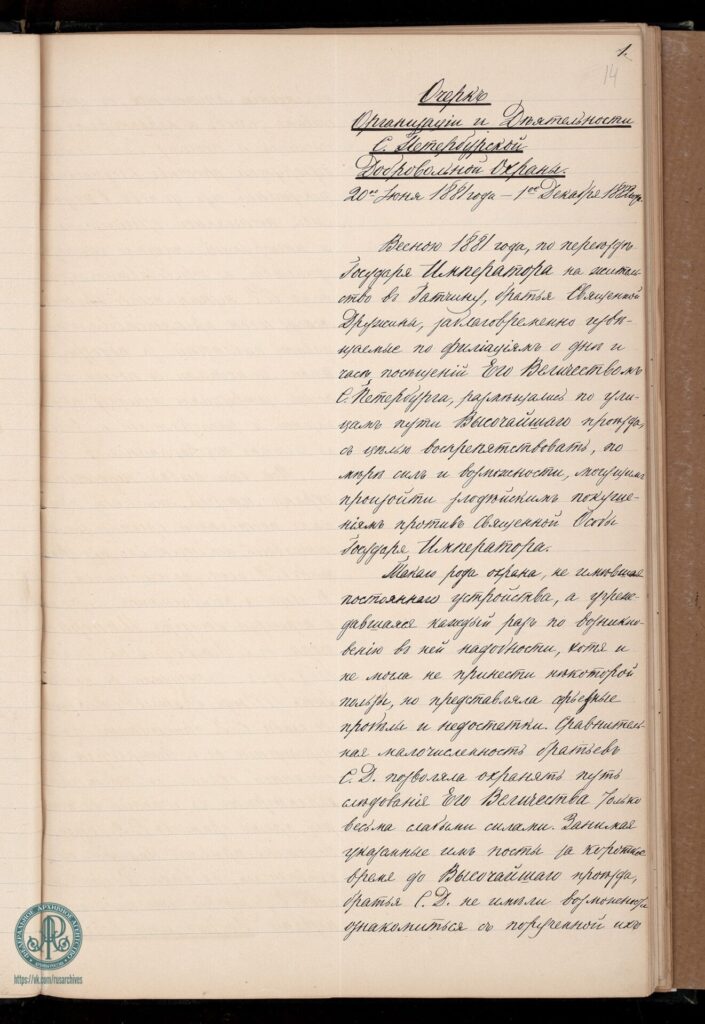 1.
14
Очеркъ
Организаціи и Дѣятельности
С. Петербургской
Добровольной Охраны.
20го Іюня 1881 года – 1ое Декабря 1882 года.
Весною 1881 года, по переѣздѣ
Государя Императора на житель-
ство въ Гатчину, братья Священной
Дружины, заблаговременно извѣ-
щаемые по филіаціямъ о днѣ и
часѣ посѣщеній Его Величествомъ
С. Петербурга, размѣщались по ули-
цамъ пути Высочайшаго проѣзда,
съ цѣлью воспрепятствовать, по
мѣрѣ силъ и возможности, могущимъ
произойти злодѣйскимъ покуше-
ніямъ противъ Священной Особы
Государя Императора.
Такого рода охрана, не имѣвшая
постояннаго устройства, а учреж-
давшаяся каждый разъ по возникно-
венію въ ней надобности, хотя и
не могла не принести нѣкоторой
пользы, но представляла серьезные
пробѣлы и недостатки. Сравнитель-
ная малочисленность братьевъ
С. Д. позволяла охранять путь
слѣдованія Его Величества только
весьма слабыми силами. Занимая
указанные имъ посты за короткое
время до Высочайшаго проѣзда,
братья С. Д. не имѣли возможности
ознакомиться съ порученной ихъ
ФЕДЕРАЛЬНОЕ АРХИВНОЕ АГЕНТСТВО
https://vk.com/rusarchives